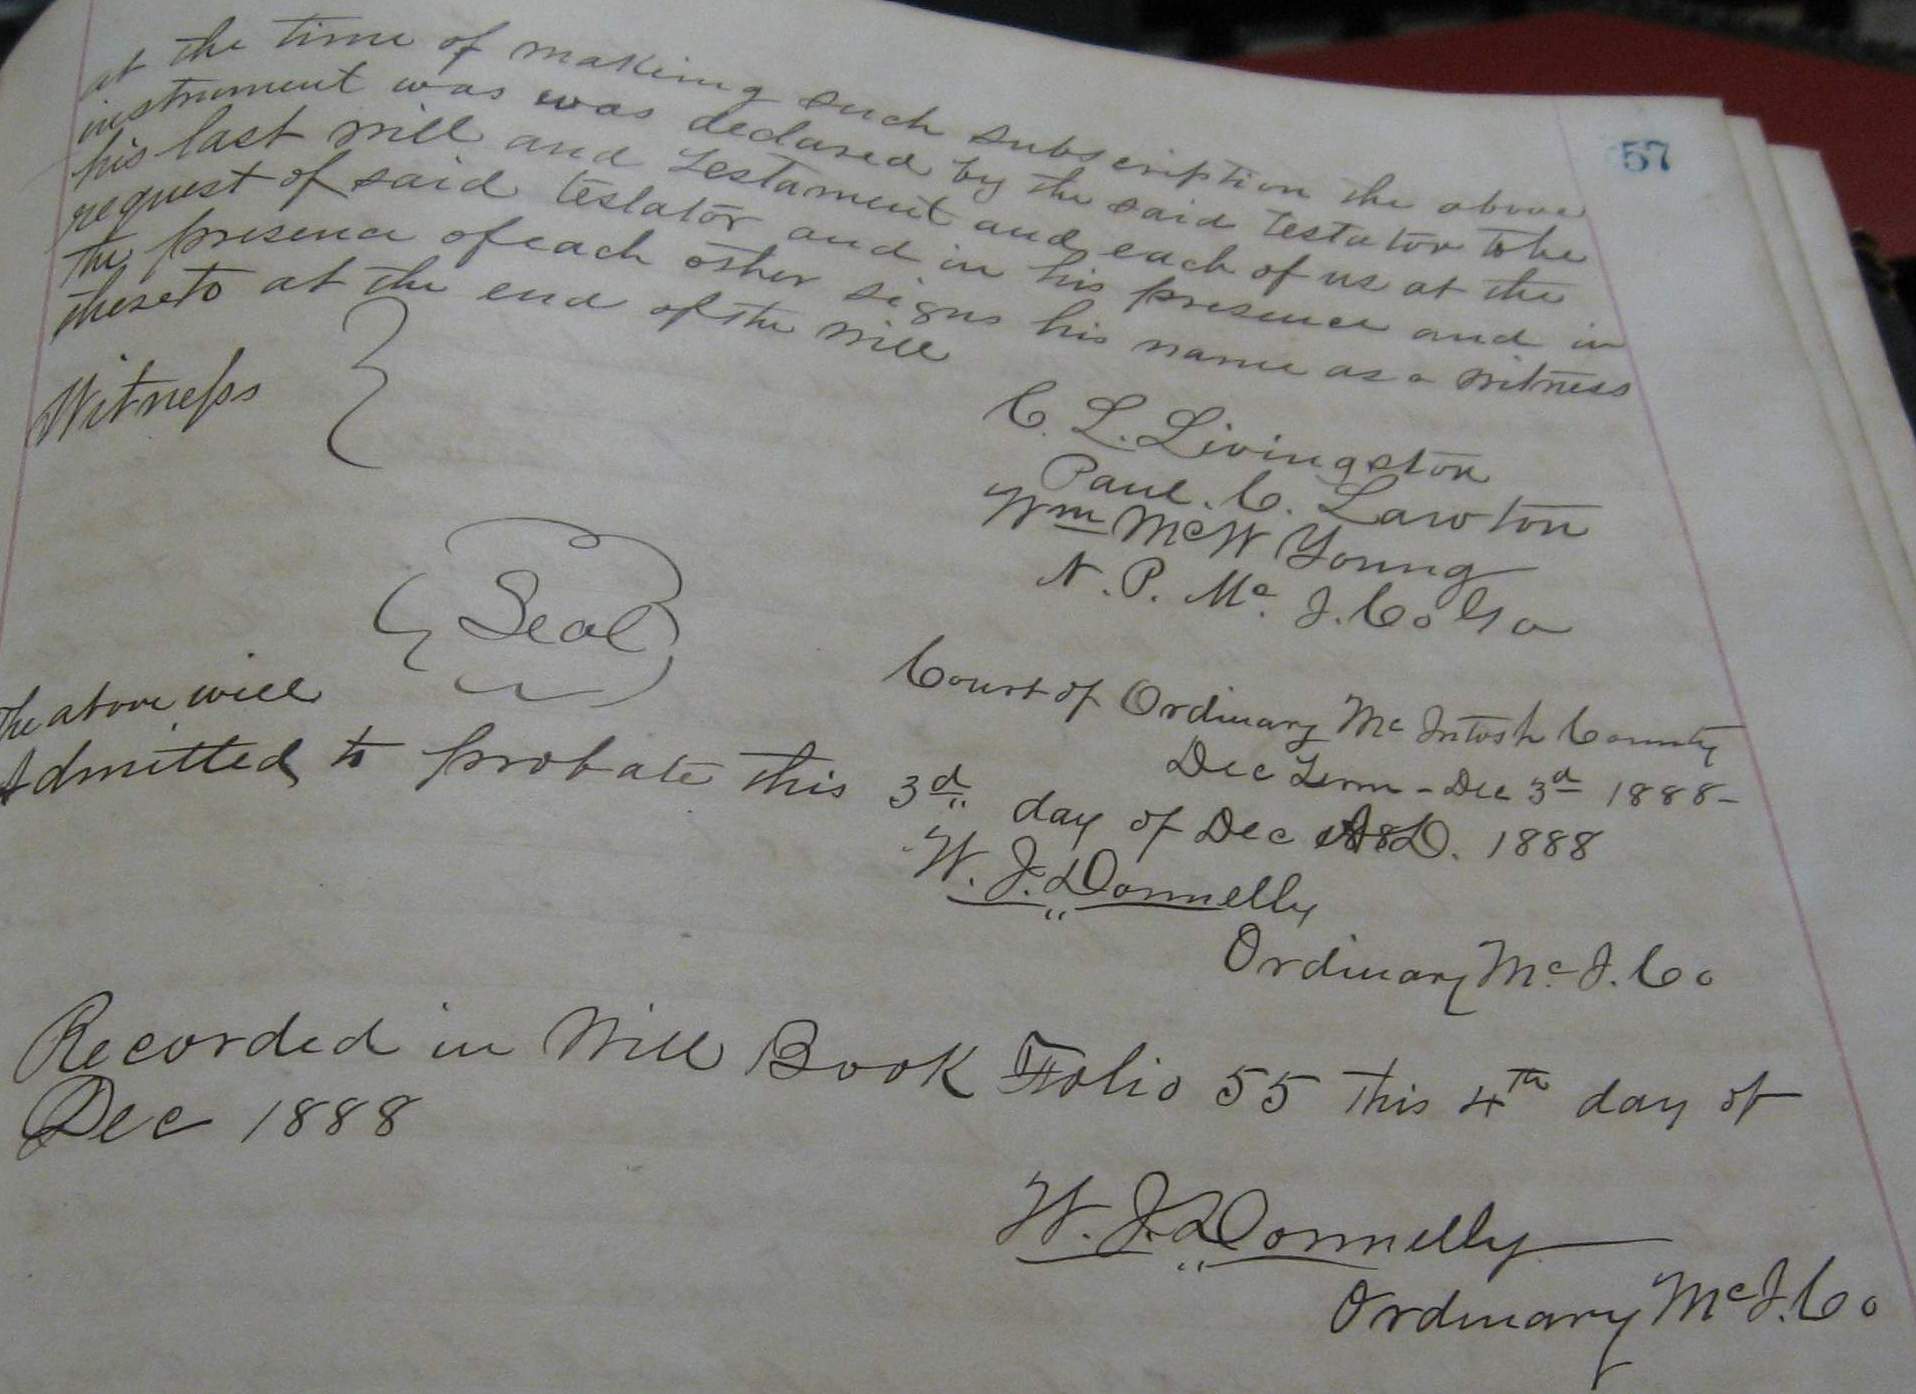 57
at the time of making such subscription the above
instrument was was declared by the said testator to be
his last will and testament and each of us at the
request of said testator and in his presence and in
the presence of each other signs his name as a witness
thereto at the end of the will
Witness
C. L. Livingston
Paul. C. Lawton
Wm McW Young
N. P. Mc. I. Co Ga
Seal
Court of Ordinary McIntosh County
Dec Term - Dec 3d 1888 -
The above will
Admitted to probate this 3d day of Dec A.D. 1888
W. J. Donnelly
Ordinary Mc. I. Co
Recorded in Will Book Folio 55 this 4th day of
Dec 1888
W. J. Donnelly
Ordinary McI. Co